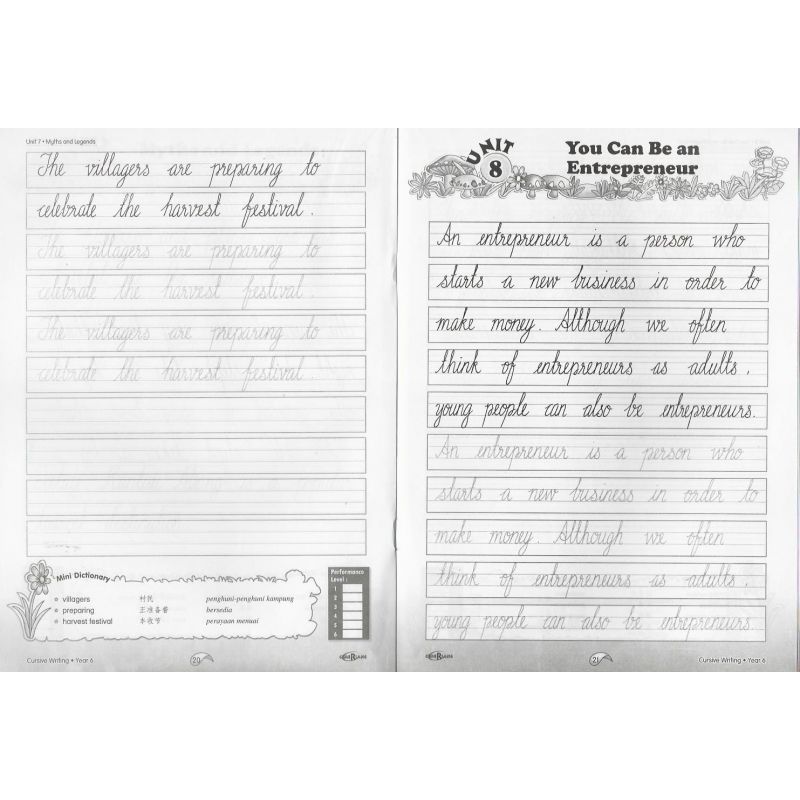 Unit 7 • Myths and Legends
The villagers are preparing to
celebrate the harvest festival .
The villagers are preparing to
celebrate the harvest festival .
The villagers are preparing to
celebrate the harvest festival .
Mini Dictionary
villagers 村民 penghuni-penghuni kampung
preparing 正准备着 bersedia
harvest festival 丰收节 perayaan menuai
Performance
Level :
1
2
3
4
5
6
Cursive Writing • Year 6
20
UNIT
8
You Can Be an
Entrepreneur
An entrepreneur is a person who
starts a new business in order to
make money. Although we often
think of entrepreneurs as adults ,
young people can also be entrepreneurs.
An entrepreneur is a person who
starts a new business in order to
make money. Although we often
think of entrepreneurs as adults ,
young people can also be entrepreneurs.
21
Cursive Writing • Year 6